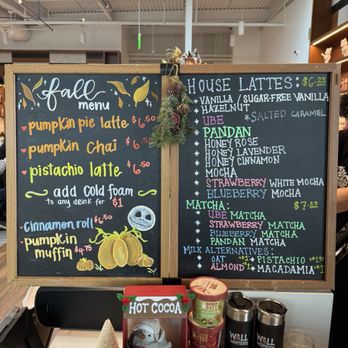 fall
menu
pumpkin pie latte $6.50
pumpkin chai $6.50
pistachio latte $6.50
add cold foam
to any drink for $1
cinnamon roll $6.50
pumpkin
muffin $4.75
HOUSE LATTES: $6.25
VANILLA / SUGAR-FREE VANILLA
HAZELNUT *SALTED CARAMEL
UBE
PANDAN
HONEY ROSE
HONEY LAVENDER
HONEY CINNAMON
MOCHA
STRAWBERRY WHITE MOCHA
BLUEBERRY MOCHA
MATCHA:
UBE MATCHA
STRAWBERRY MATCHA
BLUEBERRY MATCHA
PANDAN MATCHA
MILK ALTERNATIVES:
OAT PISTACHIO
ALMOND MACADAMIA
HOT COCOA
WALL
WALL